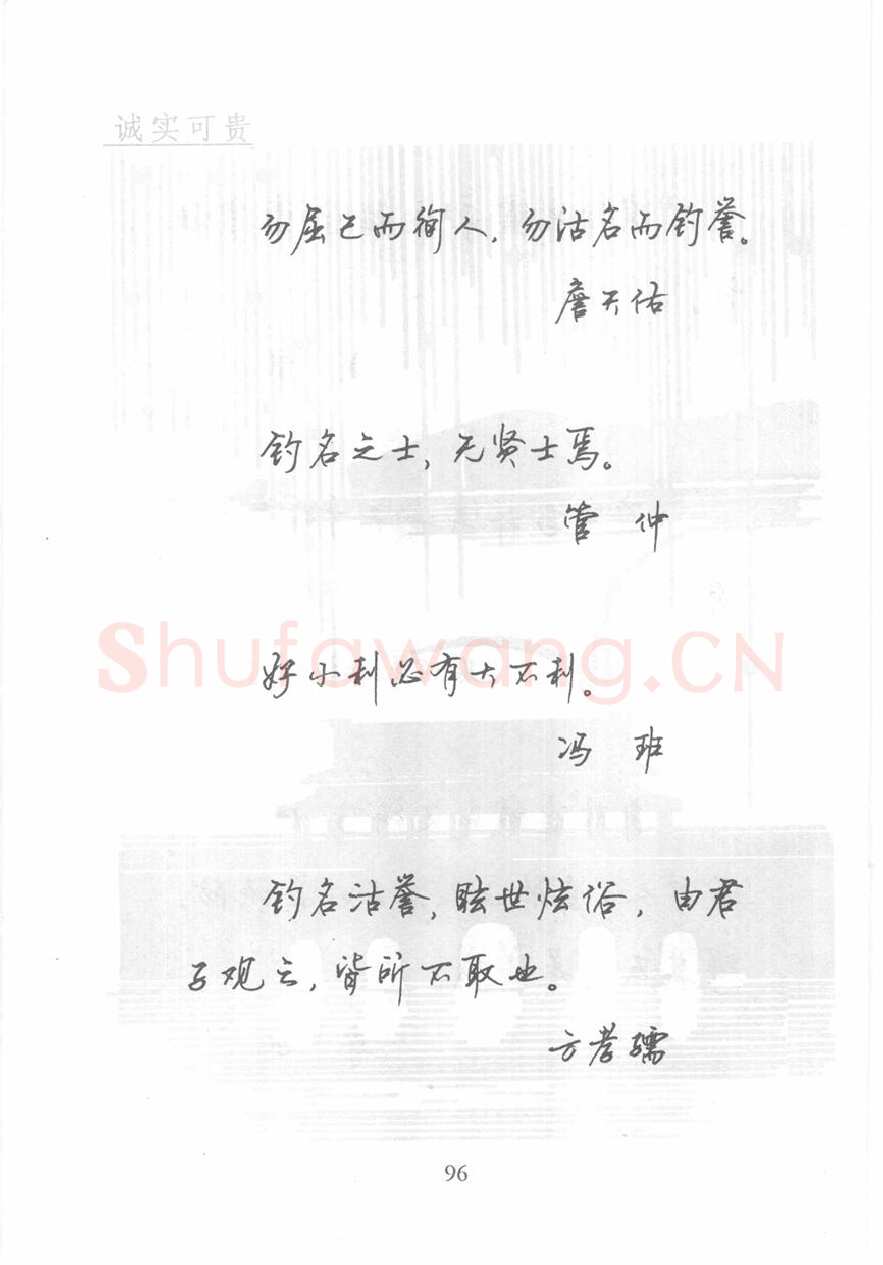 诚实可贵
勿屈己而徇人，勿沽名而钓誉。
詹天佑
钓名之士，无贤士焉。
管 仲
Shufawang.CN
好小利必有大不利。
冯 班
钓名沽誉，眩世炫俗，由君
子观之，皆所不取也。
方孝孺
96